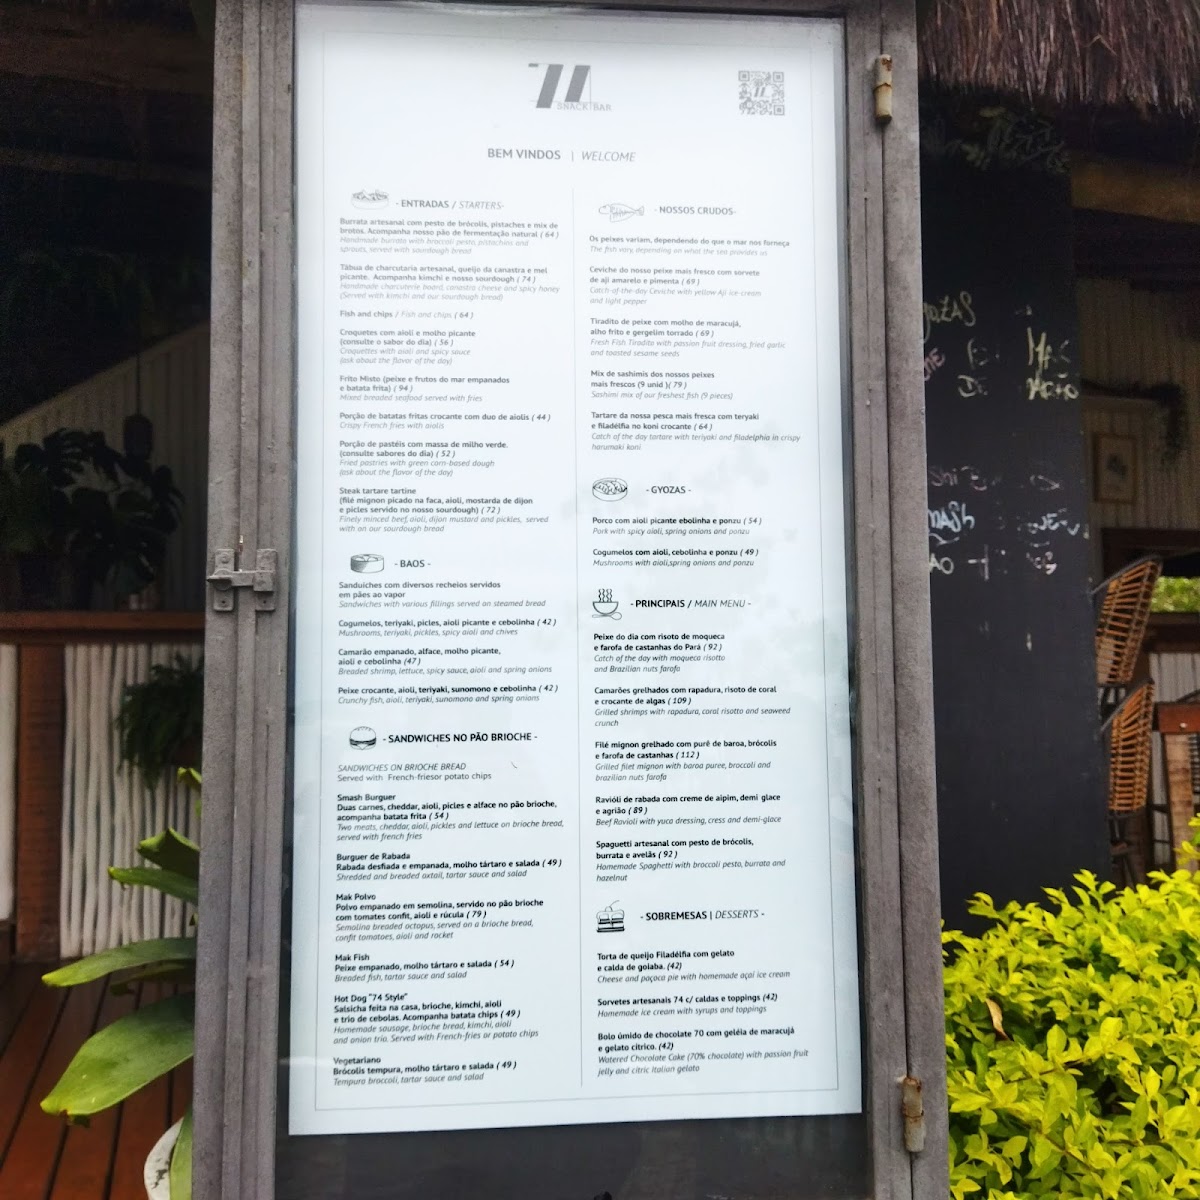 74
SNACK BAR
BEM VINDOS | WELCOME
- ENTRADAS / STARTERS-
Burrata artesanal com pesto de brócolis, pistaches e mix de
brotos. Acompanha nosso pão de fermentação natural ( 64 )
Handmade burrata with broccoli pesto, pistachios and
sprouts, served with sourdough bread
Tábua de charcutaria artesanal, queijo da canastra e mel
picante. Acompanha kimchi e nosso sourdough ( 74 )
Handmade charcuterie board, canastra cheese and spicy honey
(Served with kimchi and our sourdough bread)
Fish and chips / Fish and chips ( 64 )
Croquetes com aioli e molho picante
(consulte o sabor do dia) ( 56 )
Croquettes with aioli and spicy sauce
(ask about the flavor of the day)
Frito Misto (peixe e frutos do mar empanados
e batata frita) ( 94 )
Mixed breaded seafood served with fries
Porção de batatas fritas crocante com duo de aiolis ( 44 )
Crispy French fries with aiolis
Porção de pastéis com massa de milho verde.
(consulte sabores do dia) ( 52 )
Fried pastries with green corn-based dough
(ask about the flavor of the day)
Steak tartare tartine
(filé mignon picado na faca, aioli, mostarda de dijon
e picles servido no nosso sourdough) ( 72 )
Finely minced beef, aioli, dijon mustard and pickles, served
with on our sourdough bread
- BAOS -
Sanduiches com diversos recheios servidos
em pães ao vapor
Sandwiches with various fillings served on steamed bread
Cogumelos, teriyaki, picles, aioli picante e cebolinha ( 42 )
Mushrooms, teriyaki, pickles, spicy aioli and chives
Camarão empanado, alface, molho picante,
aioli e cebolinha (47 )
Breaded shrimp, lettuce, spicy sauce, aioli and spring onions
Peixe crocante, aioli, teriyaki, sunomono e cebolinha ( 42 )
Crunchy fish, aioli, teriyaki, sunomono and spring onions
- SANDWICHES NO PÃO BRIOCHE -
SANDWICHES ON BRIOCHE BREAD
Served with French-friesor potato chips
Smash Burguer
Duas carnes, cheddar, aioli, picles e alface no pão brioche,
acompanha batata frita ( 54 )
Two meats, cheddar, aioli, pickles and lettuce on brioche bread,
served with french fries
Burguer de Rabada
Rabada desfiada e empanada, molho tártaro e salada ( 49 )
Shredded and breaded oxtail, tartar sauce and salad
Mak Polvo
Polvo empanado em semolina, servido no pão brioche
com tomates confit, aioli e rúcula ( 79 )
Semolina breaded octopus, served on a brioche bread,
confit tomatoes, aioli and rocket
Mak Fish
Peixe empanado, molho tártaro e salada ( 54 )
Breaded fish, tartar sauce and salad
Hot Dog "74 Style"
Salsicha feita na casa, brioche, kimchi, aioli
e trio de cebolas. Acompanha batata chips ( 49 )
Homemade sausage, brioche bread, kimchi, aioli
and onion trio. Served with French-fries or potato chips
Vegetariano
Brócolis tempura, molho tártaro e salada ( 49 )
Tempura broccoli, tartar sauce and salad
- NOSSOS CRUDOS-
Os peixes variam, dependendo do que o mar nos forneça
The fish vary, depending on what the sea provides us
Ceviche do nosso peixe mais fresco com sorvete
de aji amarelo e pimenta ( 69 )
Catch-of-the-day Ceviche with yellow Aji ice cream
and light pepper
Tiradito de peixe com molho de maracujá,
alho frito e gergelim torrado ( 69 )
Fresh Fish Tiradito with passion fruit dressing, fried garlic
and toasted sesame seeds
Mix de sashimis dos nossos peixes
mais frescos (9 unid )( 79 )
Sashimi mix of our freshest fish (9 pieces)
Tartare da nossa pesca mais fresca com teryaki
e filadélfia no koni crocante ( 64 )
Catch of the day tartare with teriyaki and filadelphia in crispy
harumaki koni
- GYOZAS -
Porco com aioli picante ebolinha e ponzu ( 54 )
Pork with spicy aioli, spring onions and ponzu
Cogumelos com aioli, cebolinha e ponzu ( 49 )
Mushrooms with aioli,spring onions and ponzu
- PRINCIPAIS / MAIN MENU -
Peixe do dia com risoto de moqueca
e farofa de castanhas do Pará ( 92 )
Catch of the day with moqueca risotto
and Brazilian nuts farofa
Camarões grelhados com rapadura, risoto de coral
e crocante de algas ( 109 )
Grilled shrimps with rapadura, coral risotto and seaweed
crunch
Filé mignon grelhado com purê de baroa, brócolis
e farofa de castanhas ( 112 )
Grilled filet mignon with baroa puree, broccoli and
brazilian nuts farofa
Ravióli de rabada com creme de aipim, demi glace
e agrião ( 89 )
Beef Ravioli with yuca dressing, cress and demi-glace
Spaguetti artesanal com pesto de brócolis,
burrata e avelãs ( 92 )
Homemade Spaghetti with broccoli pesto, burrata and
hazelnut
- SOBREMESAS | DESSERTS -
Torta de queijo Filadélfia com gelato
e calda de goiaba. (42)
Cheese and paçoca pie with homemade açaí ice cream
Sorvetes artesanais 74 c/ caldas e toppings (42)
Homemade ice cream with syrups and toppings
Bolo úmido de chocolate 70 com geléia de maracujá
e gelato cítrico. (42)
Watered Chocolate Cake (70% chocolate) with passion fruit
jelly and citric Italian gelato